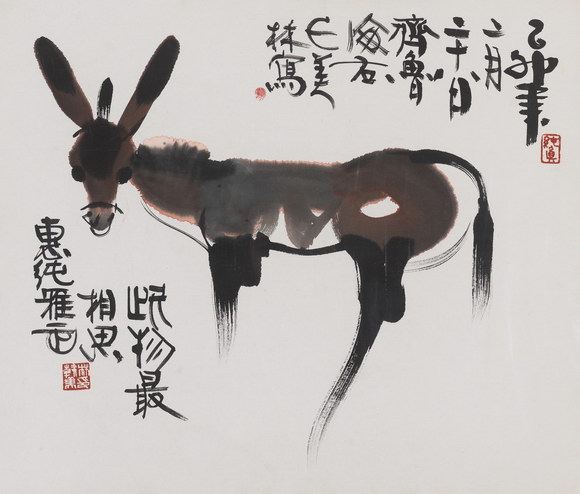 乙卯年
二月
二十八日
齊魯
海右
美
林寫
此物最
相思
惠純雅正